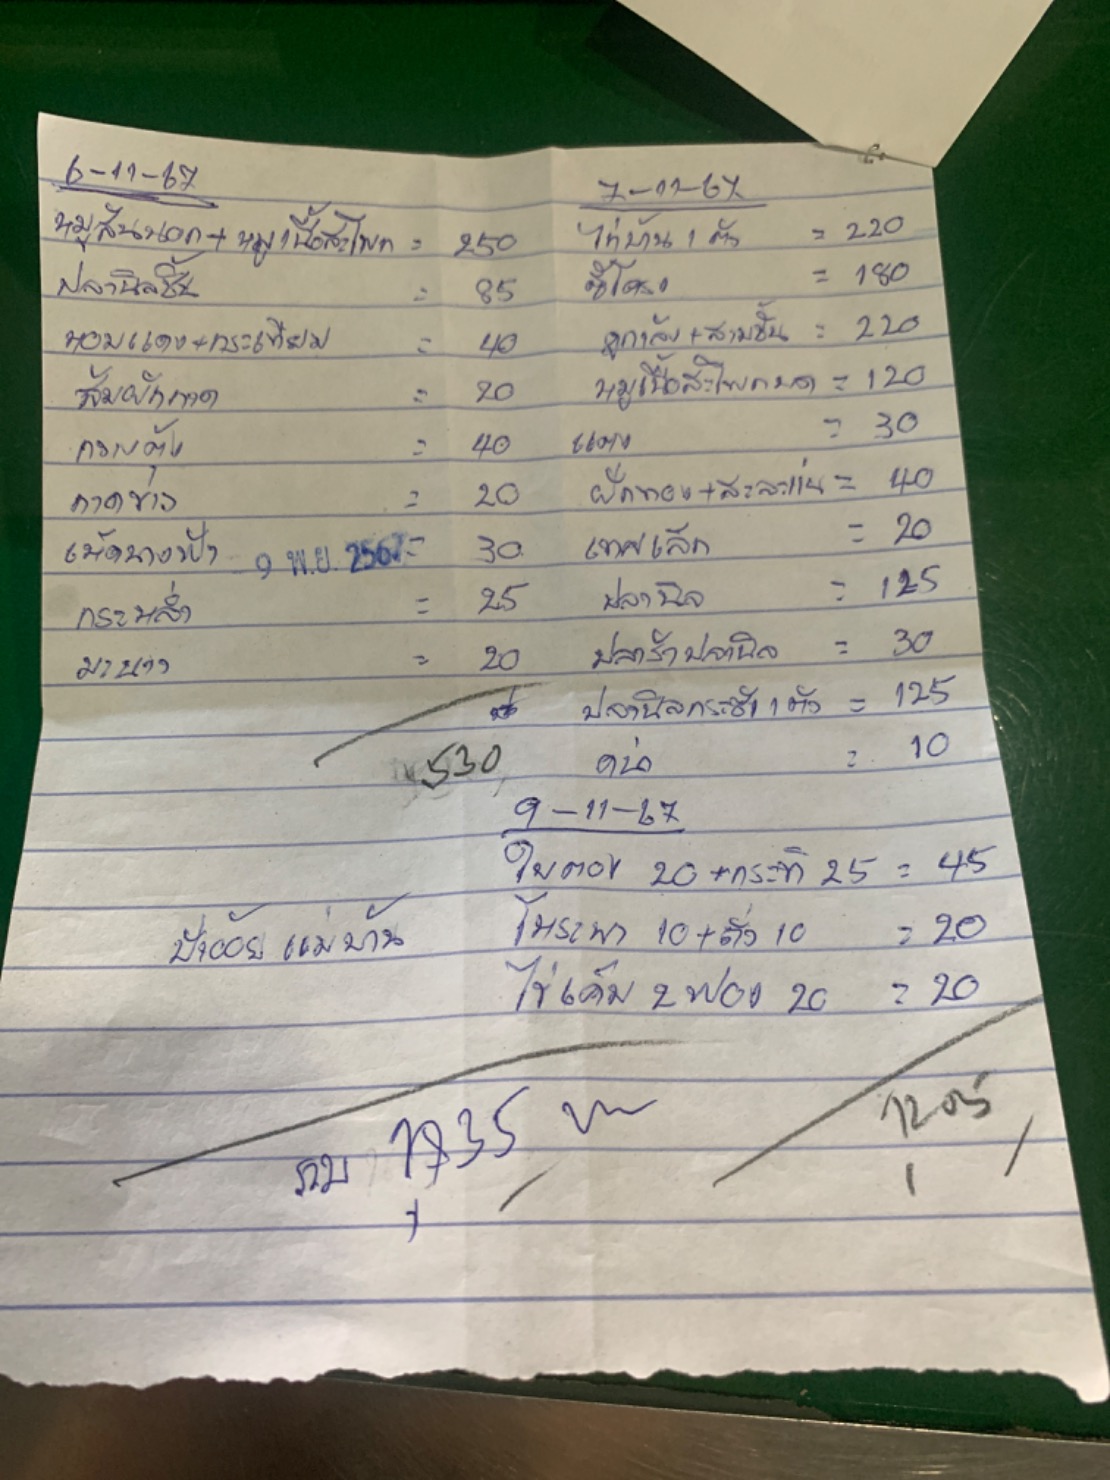 6-11-67
หมูสันนอก+หมูเนื้อสะโพก = 250
ปลานิลชิ้น = 85
หอมแดง+กระเทียม = 40
ส้มผักกาด = 20
กวางตุ้ง = 40
กาดขาว = 20
เห็ดนางฟ้า = 30
9 พ.ย. 2567
กระหล่ำ = 25
มะนาว = 20
530
7-11-67
ไก่บ้าน 1 ตัว = 220
ซี่โครง = 180
+สามชั้น = 220
หมูเนื้อสะโพกบด = 120
แตง = 30
ฟักทอง+สะละแน่ = 40
เทศเล็ก = 20
ปลานิล = 125
ปลาร้าปลานิล = 30
ปลานิลกระชัง 1 ตัว = 125
= 10
9-11-67
ใบตอง 20 +กระทิ 25 = 45
โหระพา 10+ถั่ว 10 = 20
ไข่เค็ม 2 ฟอง 20 = 20
ป้าอ้อย แม่บ้าน
1205
รวม 1735 บาท